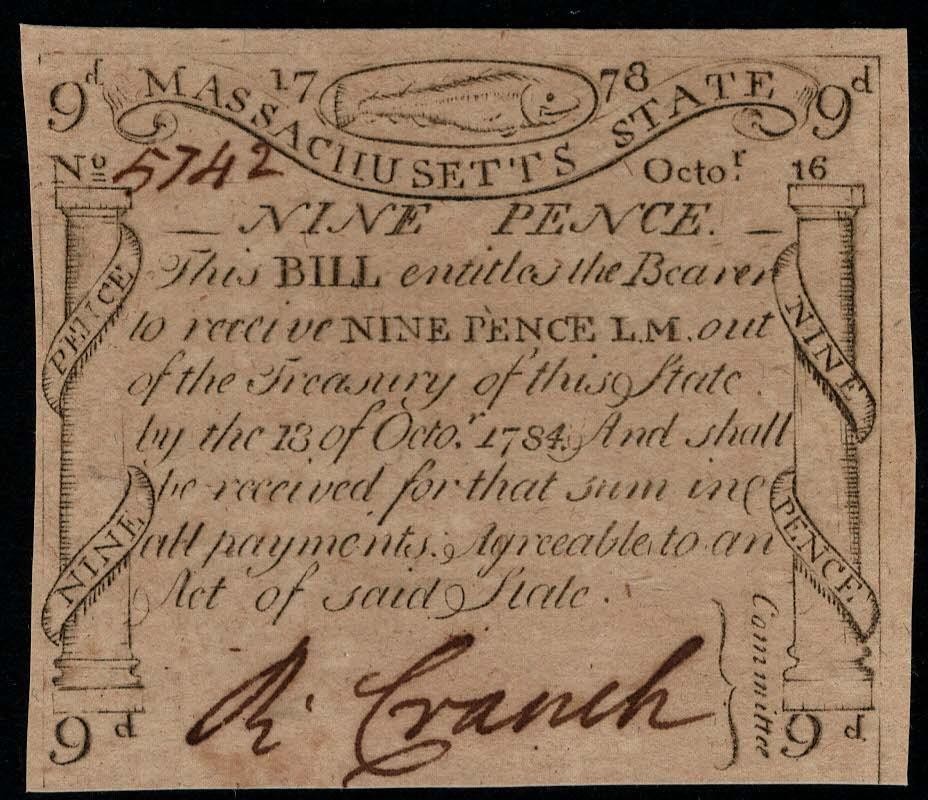 9d 17 78 9d
MASSACHUSETTS STATE
No 5742 Octor. 16
NINE PENCE.
This BILL entitles the Bearer
to receive NINE PENCE L.M. out
of the Treasury of this State
by the 18 of Octor. 1784. And shall
be received for that sum in
all payments. Agreeable to an
Act of said State.
PENCE
NINE
NINE
PENCE
R. Cranch
Committee
9d 9d